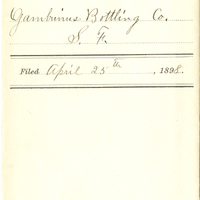 Gambrinus Bottling Co.
S. F.
Filed April 25th, 1898.